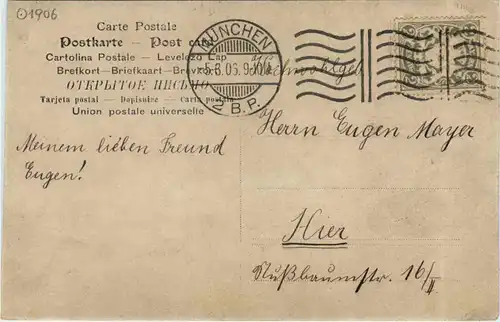 ⊙1906
Carte Postale
Postkarte — Post c
Cartolina Postale — Levelező Lap
Brefkort — Briefkaart — Brevko
ОТКРЫТОЕ ПИСЬМО
Tarjeta postal — Dopisnice — Carta postala
Union postale universelle
MÜNCHEN
5.8.06.9
2 B.P.
Hochwohlgeb.
Herrn Eugen Mayer
Meinem lieben Freund
Eugen!
Hier
Nußbaumstr. 16/II